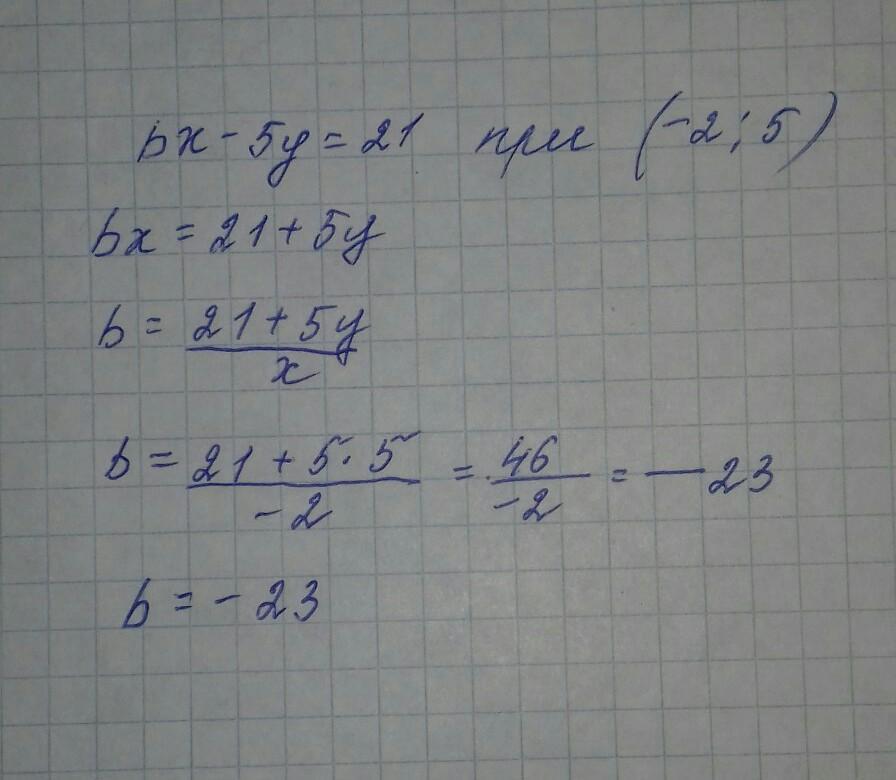 bx - 5y = 21 при (-2; 5)
bx = 21 + 5y
b = (21 + 5y)/x
b = (21 + 5 · 5)/(-2) = 46/(-2) = -23
b = -23